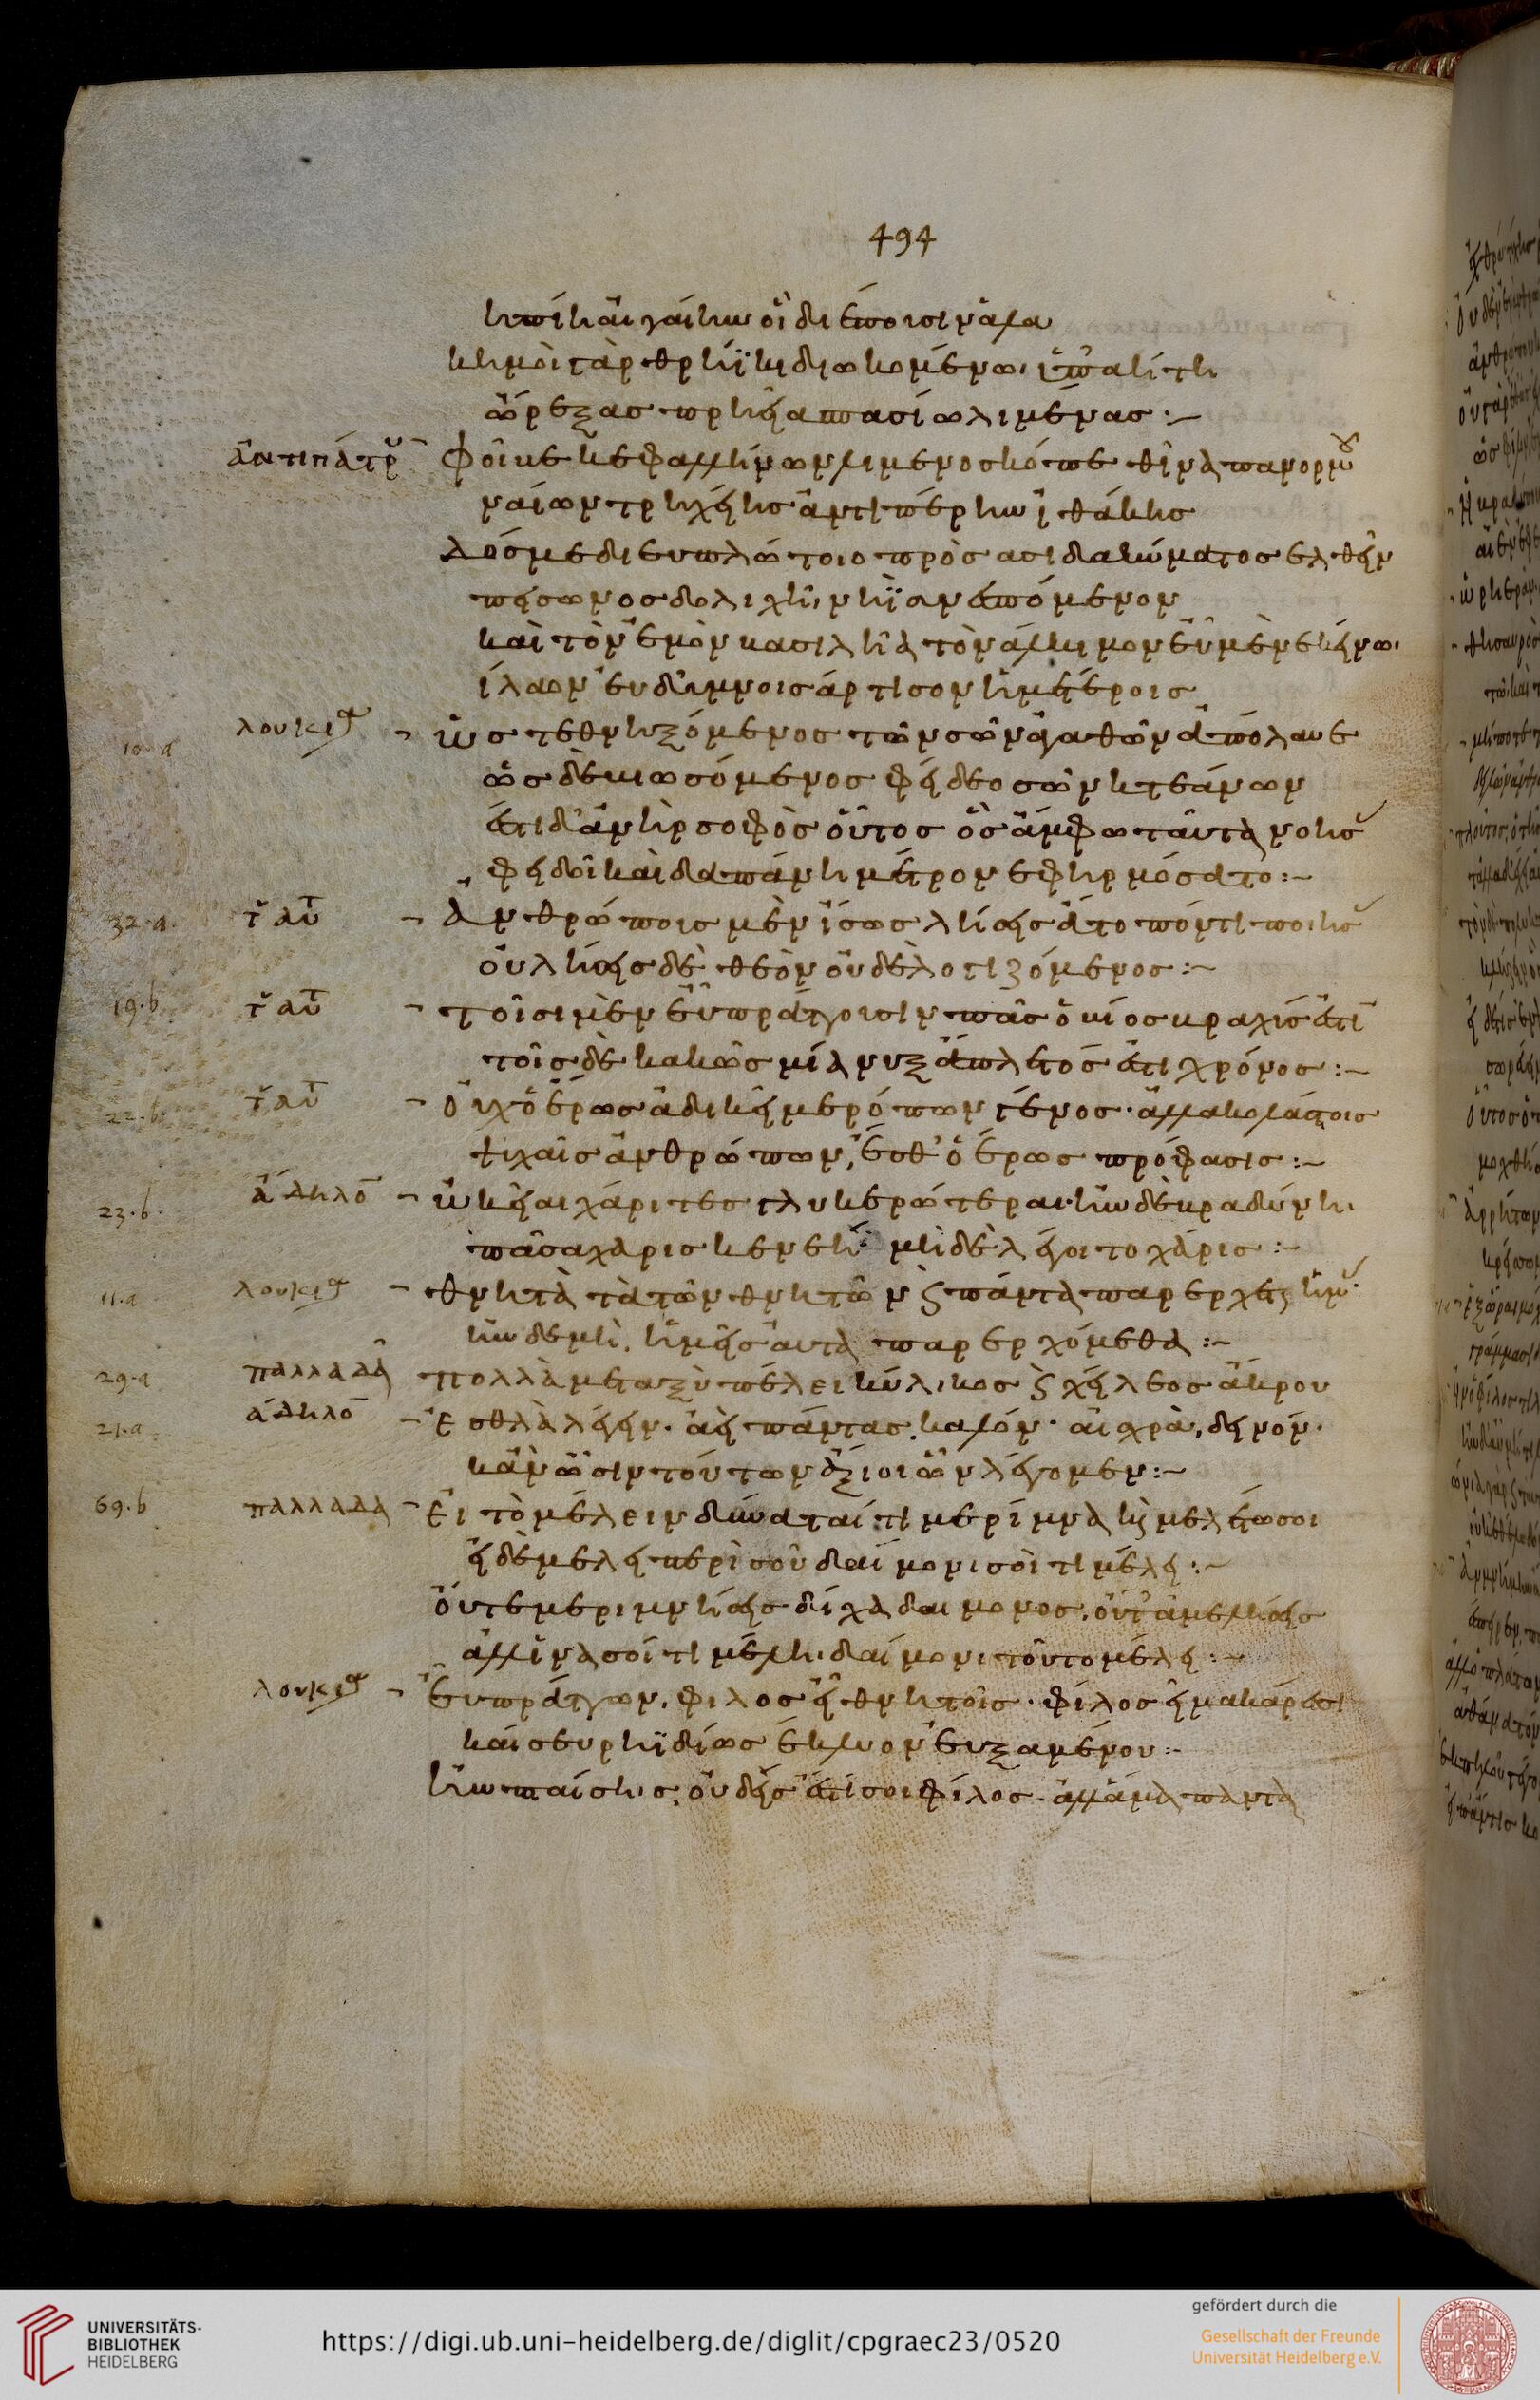 494
ἠπίη αἰγαίην οἳ διέπουσιν ἅλα
κἠμοὶ γὰρ θρήϊκι διωκομένω ὑπ' ἀήτη
ὤρεξας πρηεῖα ἀσπασίω λιμένας :~
ἀντιπάτρου Φοῖβε κεφαλλήνων λιμενοσκόπε θῖνα πανόρμου
ναίων τρηχείης ἀντιπέρην ἰθάκης
δός με δι ευπλώτοιο πρὸς ασιδα κύματος ελθεῖν
πείσωνος δολιχῆ νηῒ συνεσπόμενον
καὶ τὸν ἐμὸν βασιλῆα τὸν ἄλκιμον εὖ μὲν ἐκείνω
ἵλαον εὐ δ' ὕμνοις ἄρτισον ἡμετέροις
10.a λουκιανοῦ ὡς τεθνηξόμενος τῶν σῶν ἀγαθῶν ἀπόλαυε
ὡς δὲ βιωσόμενος φείδεο σῶν κτεάνων
ἔστι δ' ἀνὴρ σοφὸς οὗτος ὃς ἄμφω ταῦτα νοήσας
φειδοῖ καὶ δαπάνη μέτρον εφηρμόσατο :~
32.a. τοῦ αὐτοῦ Ἀνθρώπους μὲν ἴσως λήσεις ἄτοπόν τι ποιήσας
οὐ λήσεις δὲ θεὸν οὐδὲ λογιζόμενος :~
19.b τοῦ αὐτοῦ τοῖσι μὲν εὖ πράττουσιν πᾶς ὁ βίος βραχύς ἐστιν
τοῖς δὲ κακῶς μία νυξ ἄπλετός ἐστι χρόνος :~
22.b. τοῦ αὐτοῦ Οὐχ' ὁ ἔρως ἀδικεῖ μερόπων γένος. ἀλλ' ακολάστοις
ψυχαῖς ἀνθρώπων, ἔσθ' ὁ ἔρως πρόφασις :~
23.b. ἄδηλον ὠκεῖαι χάριτες γλυκερώτεραι· ἢν δὲ βραδύνη
πᾶσα χάρις κενεὴ μὴ δὲ λέγοιτο χάρις :~
11.a λουκιανοῦ θνητὰ τὰ τῶν θνητῶν καὶ πάντα παρερχεται ἡμᾶς
ἢν δε μὴ, ἡμεῖς αὐτὰ παρερχόμεθα :~
29.a παλλαδᾶ πολλὰ μεταξὺ πέλει κύλικος καὶ χείλεος ἄκρου
21.a ἄδηλον Ἐσθλὰ λέγειν. ἀεὶ πάντας, καλόν. αἰσχρὰ, δεινόν.
κἂν ὦσιν τούτων ἄξιοι ὧν λέγομεν :~
69.b παλλαδᾶ Εἰ τὸ μέλειν δύναταί τι μερίμνα κ(αὶ) μελέτω σοι
εἰ δὲ μέλει περὶ σοῦ δαίμονι σοὶ τί μέλει :~
οὔτε μεριμνήσεις δίχα δαιμονος, οὔτ' ἀμελήσεις
ἀλλ' ἵνα σοί τι μέλη· δαίμονι τοῦτο μέλει :~
λουκιανοῦ Εὐ πράττων, φιλος εἶ θνητοῖς. φίλος εἶ μακάρεσσι
καί σευ ρηϊδίως ἔκλυον εὐξαμένου :~
ἢν πταίσης, οὐδεὶς ἔτι σοι φίλος. ἀλλ' ἅμα παντα
UNIVERSITÄTS-
BIBLIOTHEK
HEIDELBERG
https://digi.ub.uni-heidelberg.de/diglit/cpgraec23/0520
gefördert durch die
Gesellschaft der Freunde
Universität Heidelberg e.V.